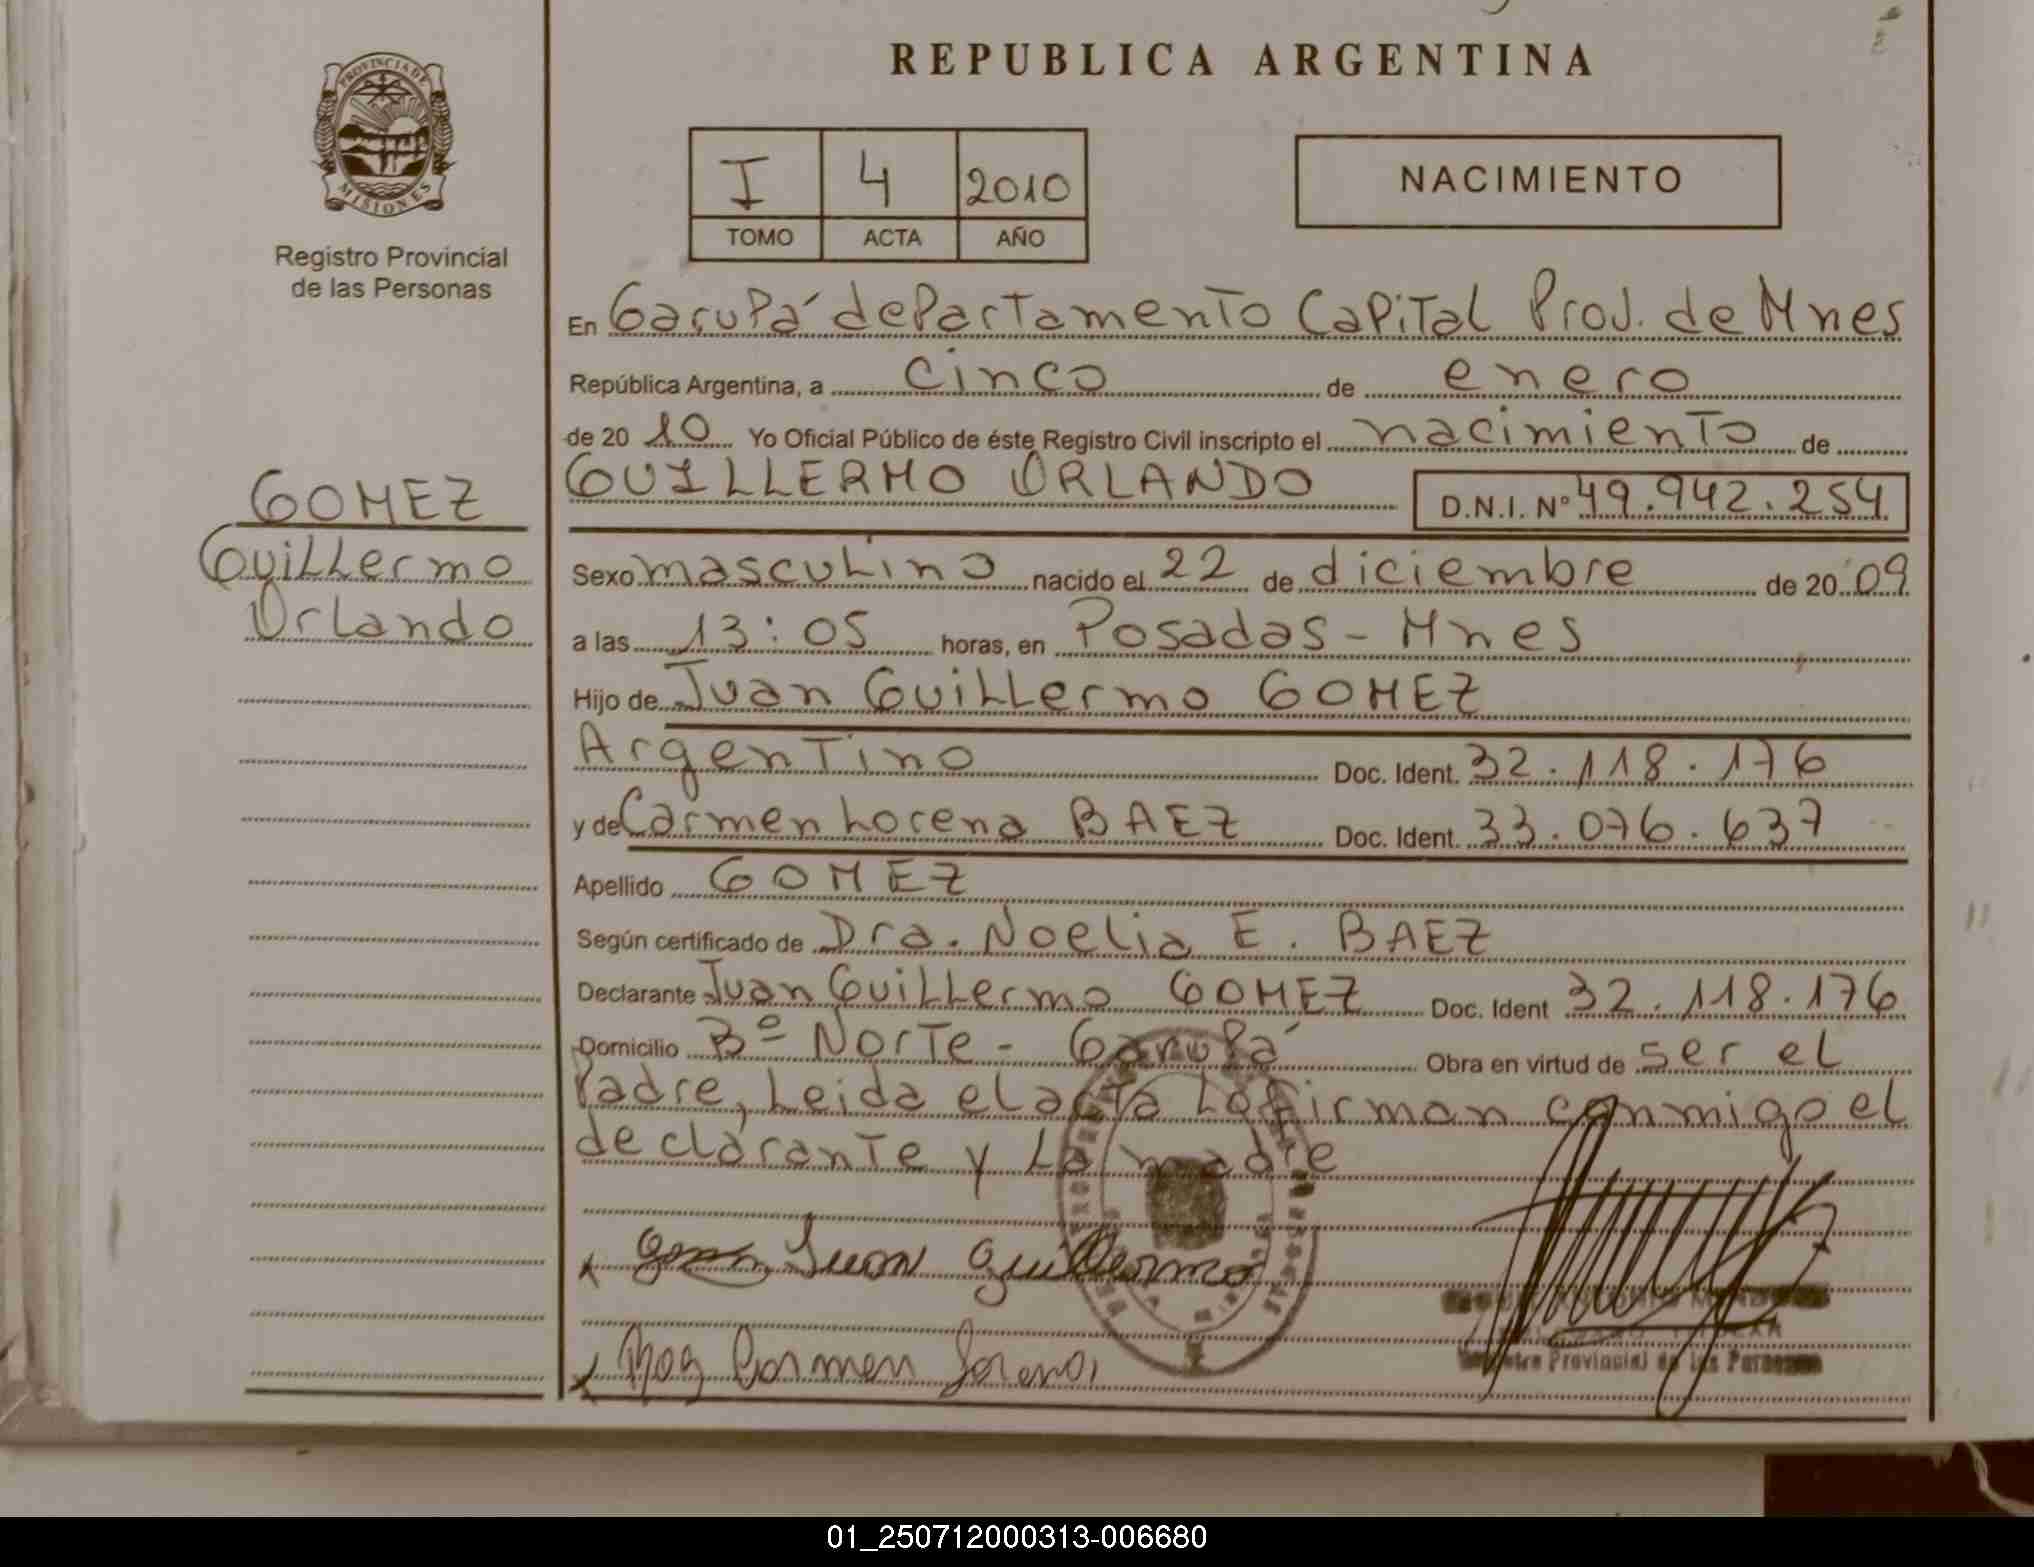 REPUBLICA ARGENTINA
PROVINCIA DE
MISIONES
Registro Provincial
de las Personas
I 4 2010
TOMO ACTA AÑO
NACIMIENTO
GOMEZ
Guillermo
Orlando
En Garupá departamento Capital Prov. de Mnes
República Argentina, a cinco de enero
de 2010 Yo Oficial Público de éste Registro Civil inscripto el nacimiento de
GUILLERMO ORLANDO D.N.I. Nº 49.942.254
Sexo masculino nacido el 22 de diciembre de 2009
a las 13:05 horas, en Posadas - Mnes
Hijo de Juan Guillermo GOMEZ
Argentino Doc. Ident. 32.118.176
y de Carmen Lorena BAEZ Doc. Ident. 33.076.637
Apellido GOMEZ
Según certificado de Dra. Noelia E. BAEZ
Declarante Juan Guillermo GOMEZ Doc. Ident 32.118.176
Domicilio Bº Norte - Garupá Obra en virtud de ser el
Padre, Leida el acta la firman conmigo el
declarante y la madre
x Juan Guillermo
x Carmen Lorena
Provincial de las Personas
01_250712000313-006680